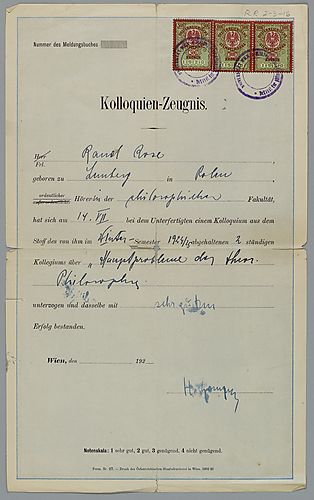 R.R. 2-3-16
Nummer des Meldungsbuches
Kolloquien-Zeugnis.
Herr Rand Rose
Frl.
geboren zu Lemberg in Polen
ordentlicher Hörer der philosophischen Fakultät,
hat sich am 14. VII bei dem Unterfertigten einem Kolloquium aus dem
Stoff des von ihm im Winter-Semester 1924/5 abgehaltenen 2 ständigen
Kollegiums über „Hauptprobleme der theor.
Philosophie
unterzogen und dasselbe mit sehr gutem
Erfolg bestanden.
Wien, den 192
Notenskala: 1 sehr gut, 2 gut, 3 genügend, 4 nicht genügend.
Form. Nr. 27. – Druck der Österreichischen Staatsdruckerei in Wien.